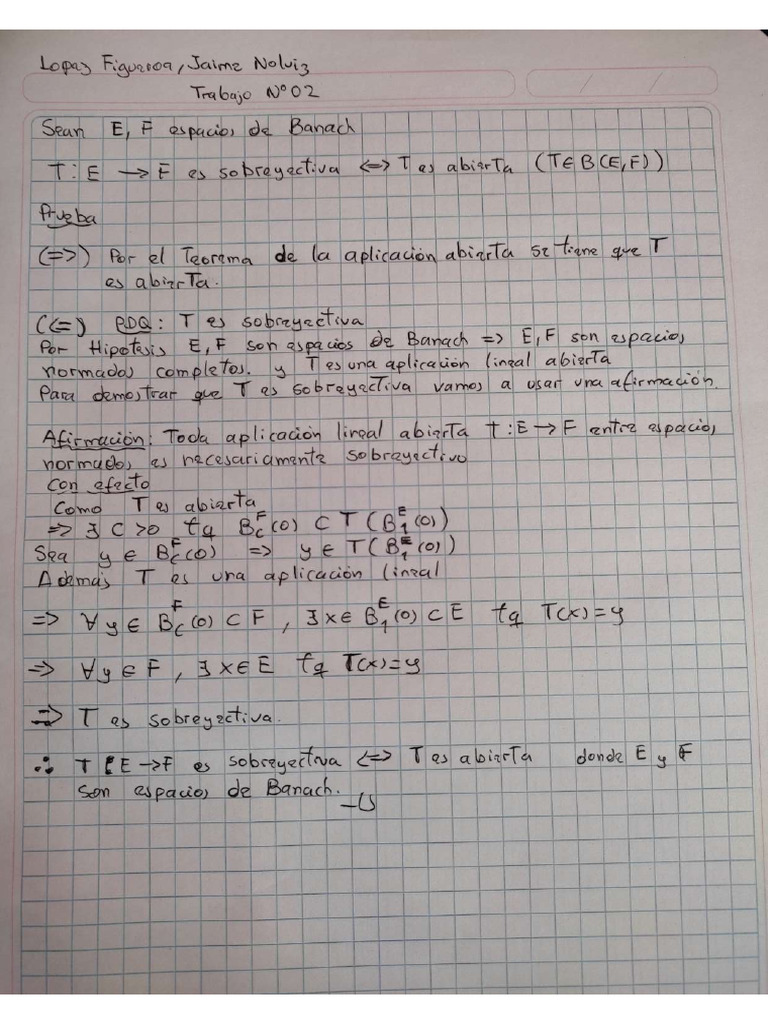 Lopez Figueroa, Jaime Nolviz
Trabajo N°02
Sean E, F espacios de Banach
T: E → F es sobreyectiva ⟺ T es abierta (T∈B(E,F))
Prueba
(⇒) Por el Teorema de la aplicación abierta se tiene que T
es abierta.
(⇐) PDQ: T es sobreyectiva
Por Hipotesis E, F son espacios de Banach ⇒ E, F son espacios
normados completos. y T es una aplicación lineal abierta
Para demostrar que T es sobreyectiva vamos a usar una afirmación.
Afirmación: Toda aplicación lineal abierta T: E → F entre espacios
normados es necesariamente sobreyectivo
Con efecto
Como T es abierta
⇒ ∃ C>0 tq B_C^F(0) ⊂ T(B_1^E(0))
Sea y ∈ B_C^F(0) ⇒ y ∈ T(B_1^E(0))
Además T es una aplicación lineal
⇒ ∀y ∈ B_C^F(0) ⊂ F, ∃x∈ B_1^E(0) ⊂ E tq T(x)=y
⇒ ∀y ∈ F, ∃x∈E tq T(x)=y
⇒ T es sobreyectiva.
∴ T: E→F es sobreyectiva ⟺ T es abierta donde E y F
son espacios de Banach.